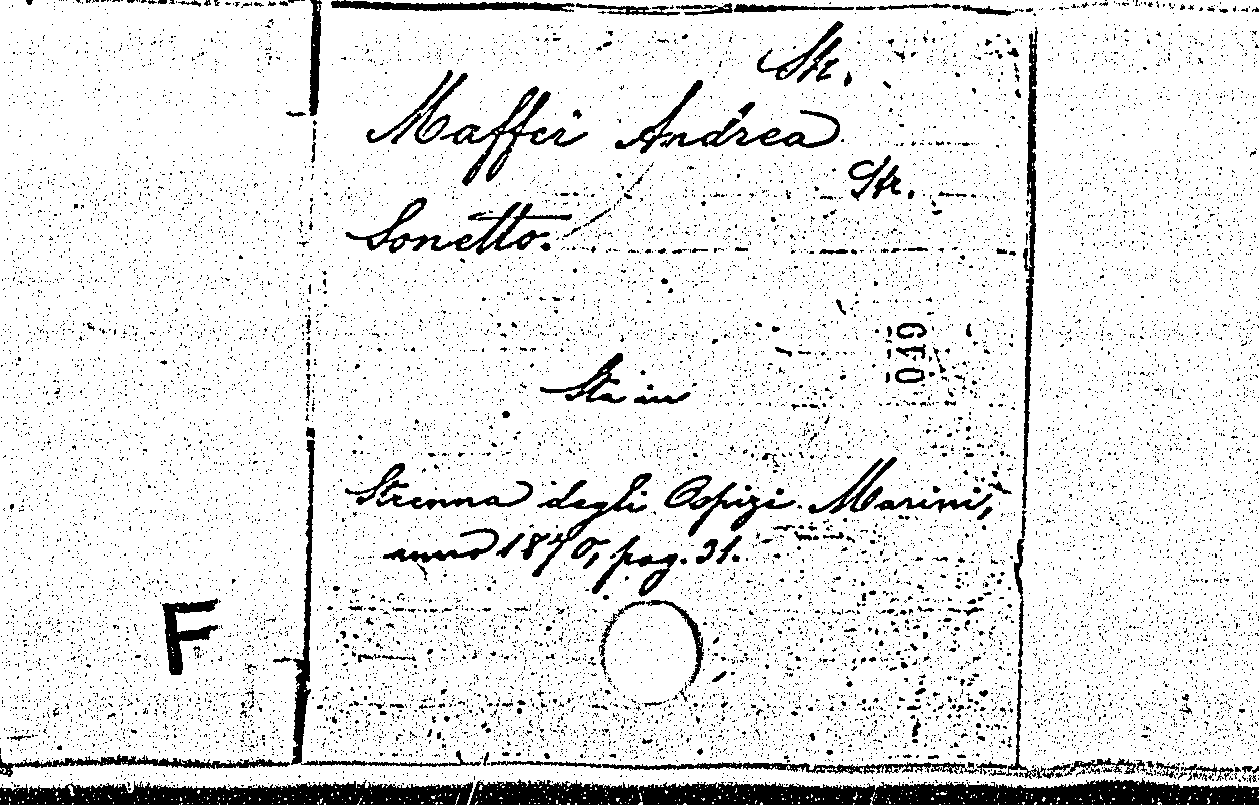 Str.
Maffei Andrea
Str.
Sonetto.
049
Sta in
Strenna degli Ospizi Marini,
anno 1870, pag. 31.
F